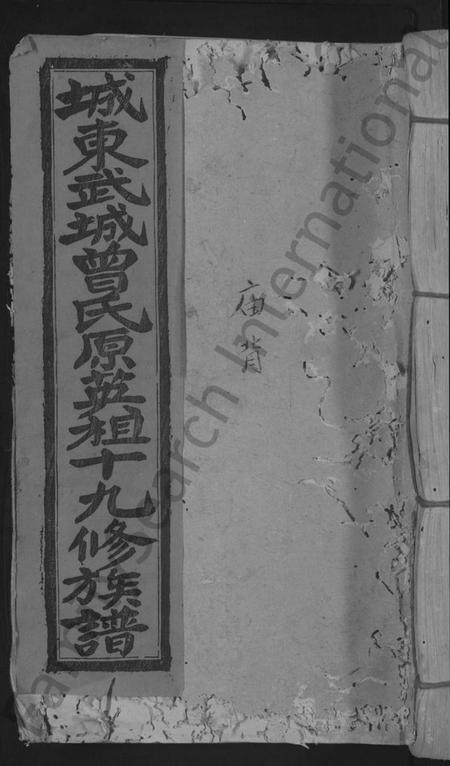 城東武城曾氏原英祖十九修族譜
庙背
earch International